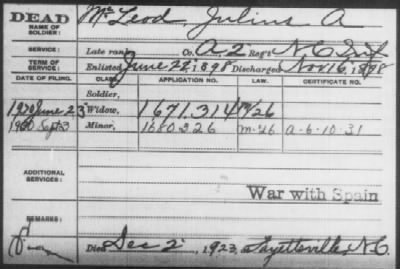 DEAD
NAME OF SOLDIER: McLeod, Julius A
SERVICE: Late rank Co. A-2 Reg't N C Inf
TERM OF SERVICE: Enlisted June 22, 1898 Discharged Nov 16, 1898
DATE OF FILING. CLASS. APPLICATION NO. LAW. CERTIFICATE NO.
Soldier,
June 23 Widow, 1671.314
Sept 3 Minor, 1680326 M-26 A-6-10-31
ADDITIONAL SERVICES:
War with Spain
REMARKS:
Died Dec 2, 1923, a Fayetteville, N.C.